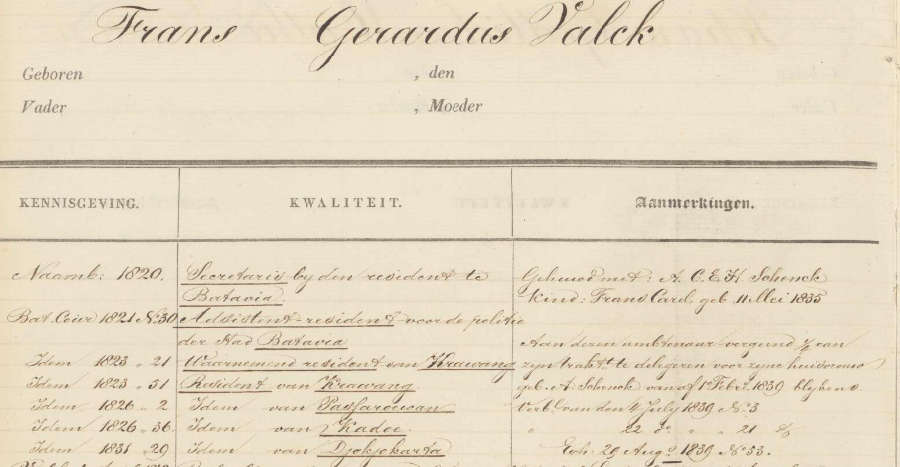 Frans Gerardus Valck
Geboren , den
Vader , Moeder
KENNISGEVING. KWALITEIT. Aanmerkingen.
Naamb: 1820. Secretaris by den resident te Gehuwd met: A. C. E. H. Schenck
Batavia. Kind: Frans Carel geb 11 Mei 1835
Bat. Cour 1821 No. 30 Adsistent-resident voor de politie
der stad Batavia Aan dezen ambtenaar vergund van
Idem 1823 " 21 Waarnemend resident van Krawang zyn trakt. te delegeren voor zyne huisvrouw
Idem 1823 " 51 Resident van Krawang geb. A. Schenck vanaf 1 Febr. 1839 blykens
Idem 1826 " 2 Idem van Passarouwan Verb. van den 4 July 1839 No. 3
Idem 1826 " 36 Idem van Kadoe. " 22 do " " 21
Idem 1831 " 29 Idem van Djokjokarta Exh: 29 Aug. 1839 No. 53.